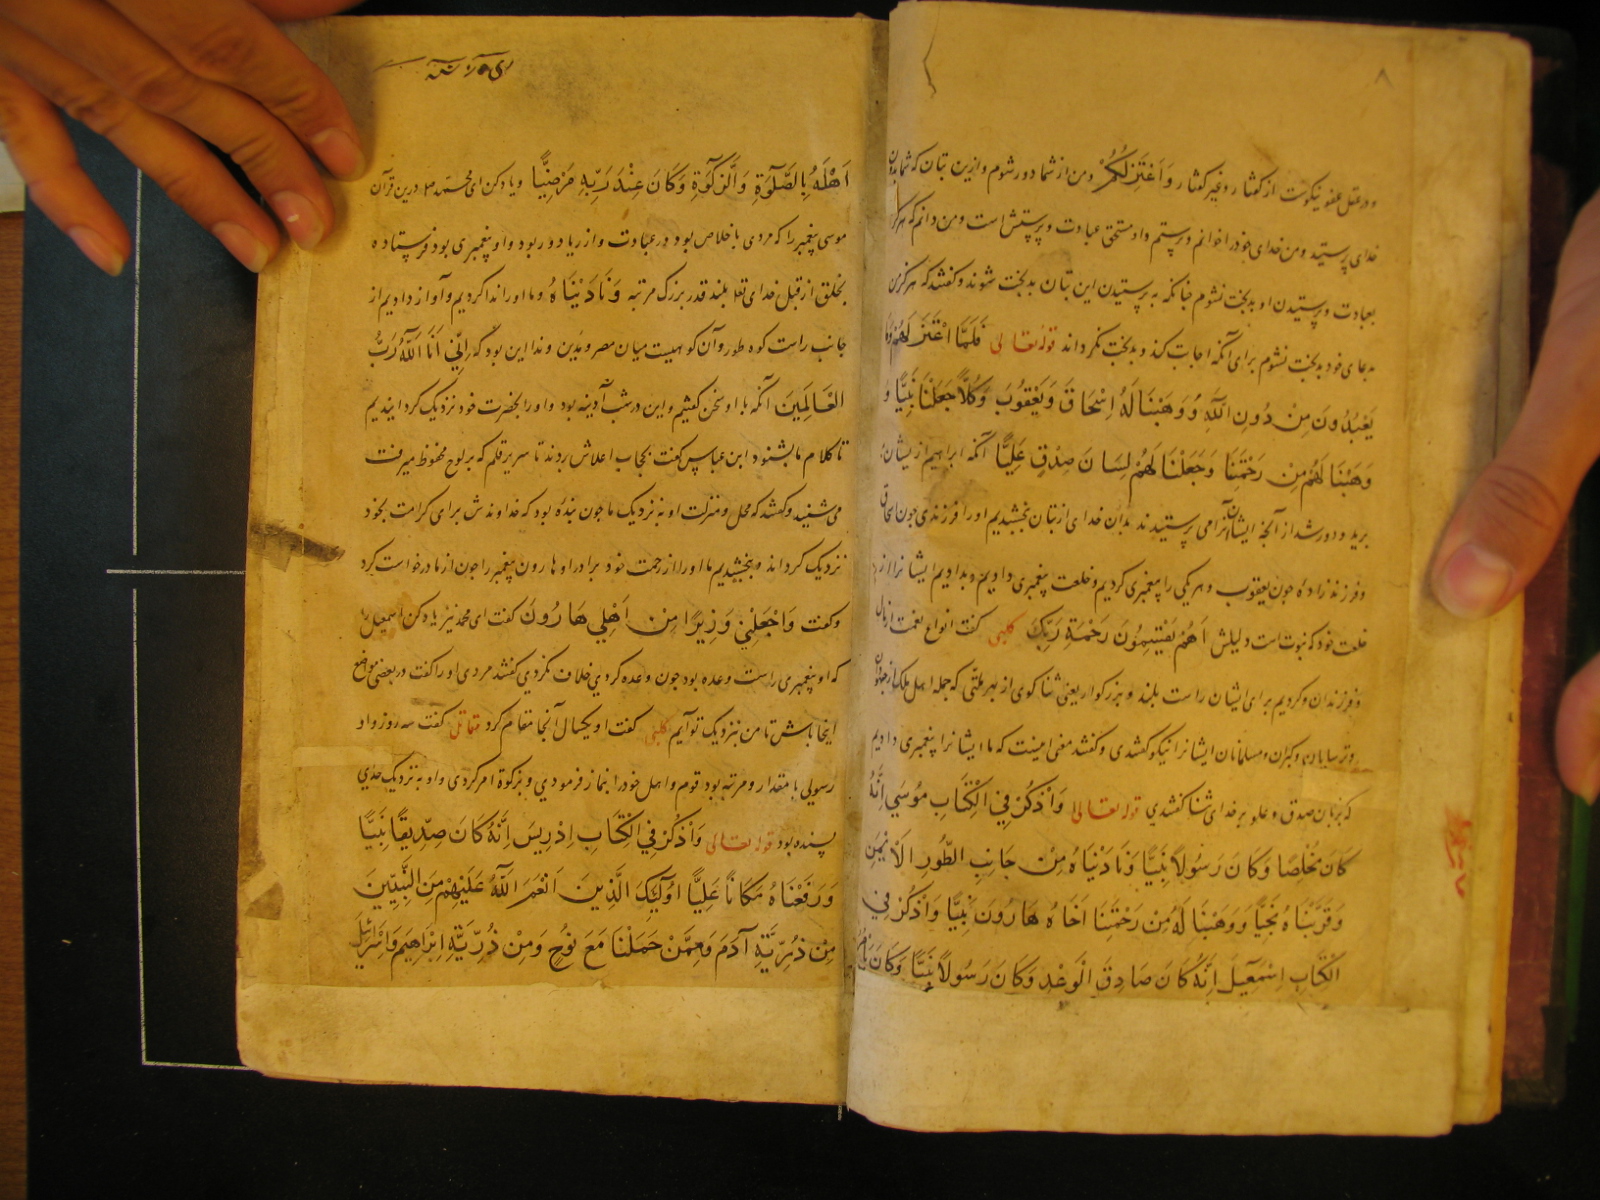 و در عقل عفو نیکوست از کفار و غیر کفار وَاَعْتَزِلُكُمْ و من از شما دور شوم و ازین بتان که شما بدون
خدای پرستید و من خدای خود را خوانم و پرستم و او مستحق عبادت و پرستش است و من دانم که هرگز
بعبادت و پرستیدن او بدبخت نشوم چنانکه به پرستیدن این بتان بدبخت شوند و گفتند که هرگز من
بدعای خود بدبخت نشوم برای آنکه اجابت کند و بدبخت نگرداند قوله تعالی فَلَمَّا اعْتَزَلَهُمْ وَمَا
يَعْبُدُونَ مِنْ دُونِ اللَّهِ وَوَهَبْنَا لَهُ اِسْحَاقَ وَيَعْقُوبَ وَكُلًّا جَعَلْنَا نَبِيًّا وَ
وَهَبْنَا لَهُمْ مِنْ رَحْمَتِنَا وَجَعَلْنَا لَهُمْ لِسَانَ صِدْقٍ عَلِيًّا آنگه ابراهیم ازیشان
برید و دور شد از آنچه ایشان آنرا می پرستیدند بدان خدای از بتان ببخشیدیم او را فرزندی چون اسحاق
و فرزند زاده چون یعقوب و هریکی را پیغمبری کردیم و خلعت پیغمبری دادیم و بدادیم ایشانرا از
خلعت خود که نبوت است دلیلش اَهُمْ يَقْسِمُونَ رَحْمَةَ رَبِّكَ کلبی گفت انواع نعمت از مال
و فرزندان و کردیم برای ایشان راست بلند و بزرگوار یعنی ثنا گوی از بهر ملتی که جمله اهل ملک از جهودان
و ترسایان و گبران و مسلمانان ایشانرا نیکو گفتندی و گفتند معنی اینست که ما ایشانرا پیغمبری دادیم
که بزبان صدق و علو بر خدای ثنا گفتندی قوله تعالی وَاذْكُرْ فِي الْكِتَابِ مُوسَى اِنَّهُ
كَانَ مُخْلَصًا وَكَانَ رَسُولًا نَبِيًّا وَنَادَيْنَاهُ مِنْ جَانِبِ الطُّورِ الْاَيْمَنِ
وَقَرَّبْنَاهُ نَجِيًّا وَوَهَبْنَا لَهُ مِنْ رَحْمَتِنَا اَخَاهُ هَارُونَ نَبِيًّا وَاذْكُرْ فِي
الْكِتَابِ اِسْمٰعِيلَ اِنَّهُ كَانَ صَادِقَ الْوَعْدِ وَكَانَ رَسُولًا نَبِيًّا وَكَانَ يَأْمُرُ
اَهْلَهُ بِالصَّلٰوةِ وَالزَّكٰوةِ وَكَانَ عِنْدَ رَبِّهِ مَرْضِيًّا و یاد کن ای محمد درین قرآن
موسی پیغمبر را که مردی با خلاص بود در عبادت و از ریا دور بود و او پیغمبری بود فرستاده
بخلق از قبل خدای تعالی بلند قدر بزرگ مرتبه وَنَادَيْنَاهُ و ما او را ندا کردیم و آواز دادیم از
جانب راست کوه طور و آن کوهیست میان مصر و مدین و ندا این بود که اِنِّي اَنَا اللَّهُ رَبُّ
الْعَالَمِينَ آنگه با او سخن گفتیم و این در شب آدینه بود و او را بحضرت خود نزدیک گردانیدیم
تا کلام ما بشنود ابن عباس گفت بحجاب اعلاش بردند تا سریر قلم که بر لوح محفوظ میرفت
می شنید و گفتند که محل و منزلت او به نزدیک ما چون بنده بود که خداوندش برای کرامت بخود
نزدیک گرداند و ببخشیدیم ما او را از رحمت خود برادر او هارون پیغمبر را چون از ما درخواست کرد
و گفت وَاجْعَلْ لِي وَزِيرًا مِنْ اَهْلِي هَارُونَ گفت ای محمد نیز یاد کن اسمعیل را
که او پیغمبری راست وعده بود چون وعده کردی خلاف نکردی گفتند مردی او را گفت در بعضی مواضع
اینجا باش تا من بنزدیک تو آیم کلبی گفت او یکسال آنجا مقام کرد مقاتل گفت سه روز و او
رسولی با مقدار و مرتبه بود قوم و اهل خود را بنماز فرمودی و بزکوة امر کردی و او به نزدیک خدای
پسندیده بود قوله تعالی وَاذْكُرْ فِي الْكِتَابِ اِدْرِيسَ اِنَّهُ كَانَ صِدِّيقًا نَبِيًّا
وَرَفَعْنَاهُ مَكَانًا عَلِيًّا اُولٰئِكَ الَّذِينَ اَنْعَمَ اللَّهُ عَلَيْهِمْ مِنَ النَّبِيِّينَ
مِنْ ذُرِّيَّةِ آدَمَ وَمِمَّنْ حَمَلْنَا مَعَ نُوحٍ وَمِنْ ذُرِّيَّةِ اِبْرَاهِيمَ وَاِسْرَائِيلَ